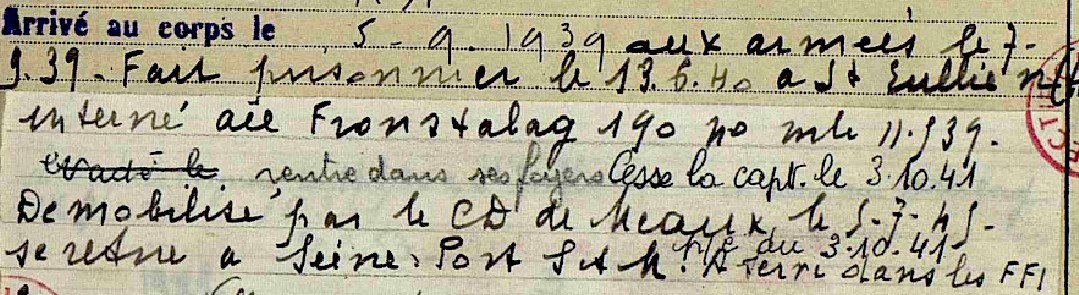 Arrivé au corps le 5-9.1939 aux armées le 7-
9.39 - Fait prisonnier le 13.6.40 a St Eullien
interné au Fronstalag 190 no mle 11.939.
evadé le rentre dans ses foyers Cesse la capt. le 3.10.41
Demobilisé par le CD de Meaux, le 5-7-45-
p/c du 3.10.41
se retire a Seine-Port S&M. A servi dans les FFI